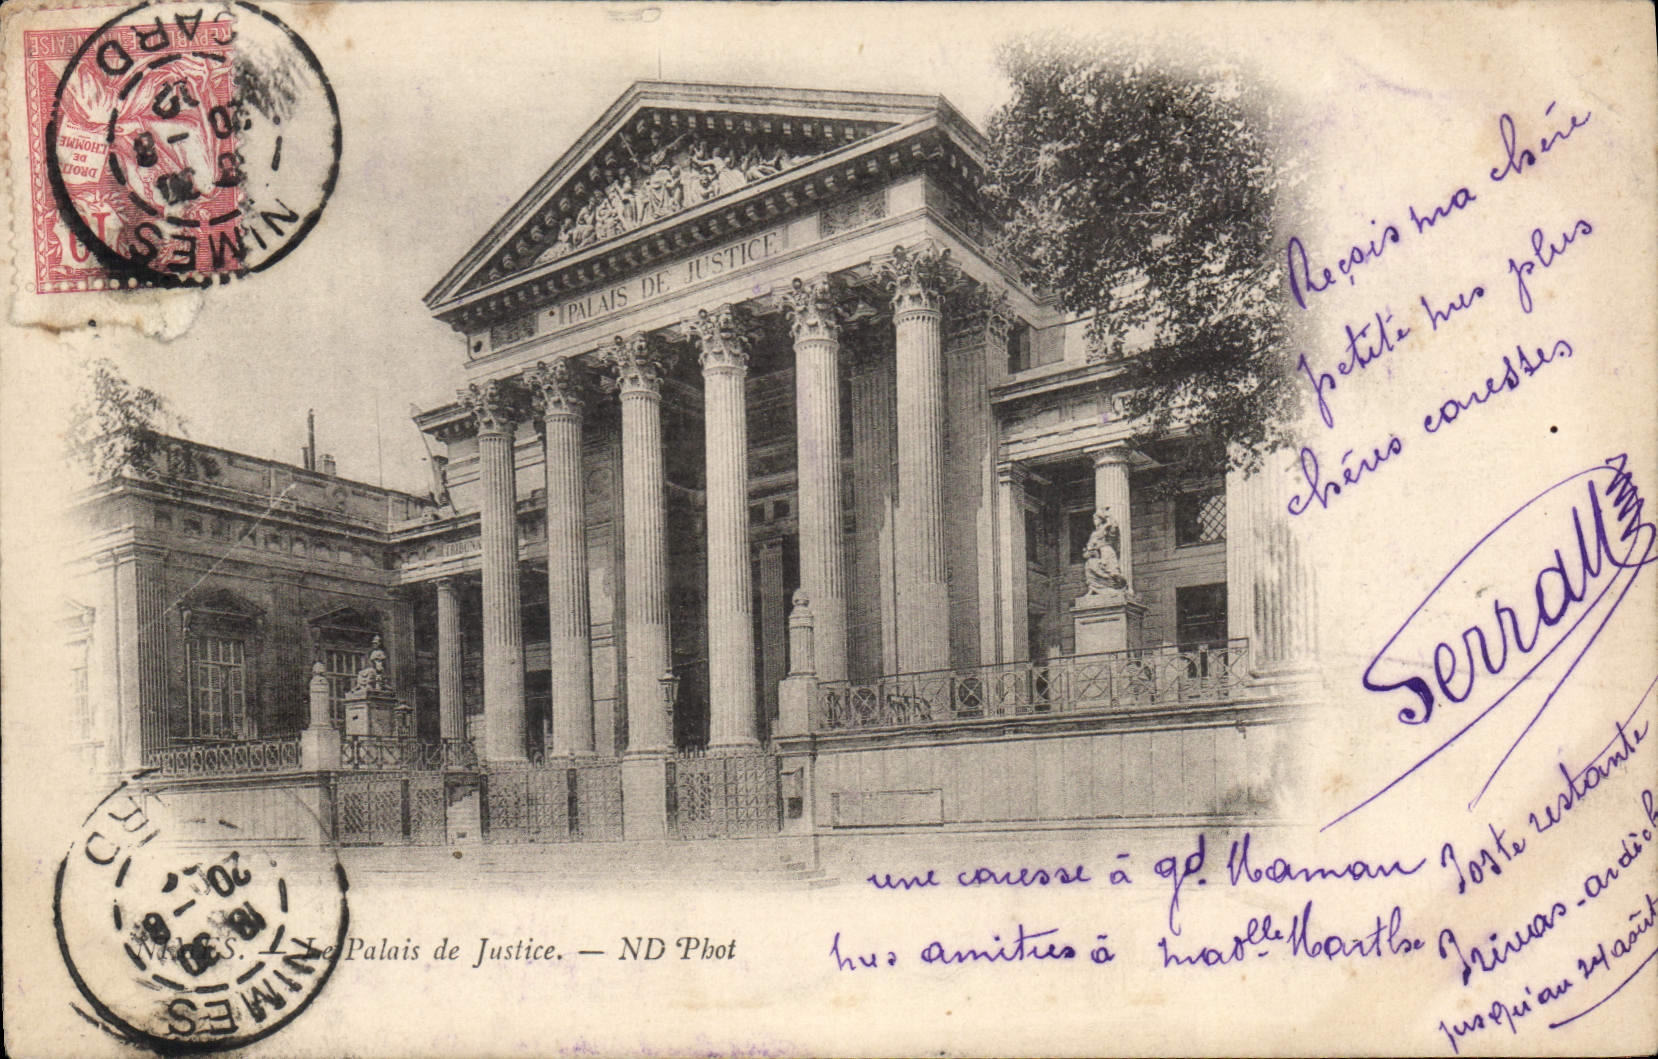 RÉPUBLIQUE FRANÇAISE
DROITS
DE
L'HOMME
10
NIMES
GARD
20
8
PALAIS DE JUSTICE
TRIBUNA
Reçois ma chérie
petite mes plus
chères caresses
Serradell
une caresse à gd. Maman
mes amitiés à madlle Marthe
Poste restante
Privas - ardèch
jusqu'au 24 août
NIMES. — Le Palais de Justice. — ND Phot
NIMES
GARD
20
8